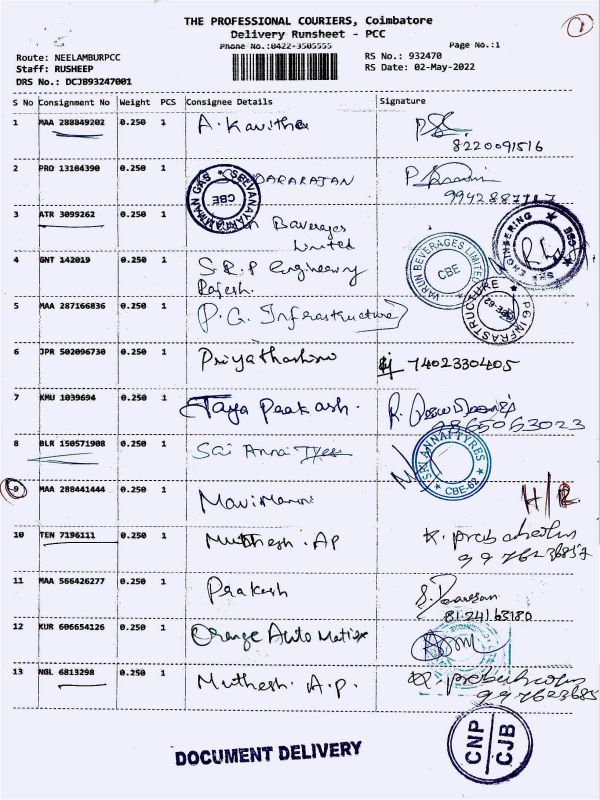 THE PROFESSIONAL COURIERS, Coimbatore
Delivery Runsheet - PCC
Phone No.:0422-3505555
Page No.:1
1
Route: NEELAMBURPCC
Staff: RUSHEEP
DRS No.: DCJB93247001
RS No.: 932470
RS Date: 02-May-2022
S No Consignment No Weight PCS Consignee Details Signature
1 MAA 288849202 0.250 1 A. Kavitha
8220091516
2 PRO 13104390 0.250 1 DARARAJAN
CBE
3 ATR 3099262 0.250 1 Beverages
Limited
VARUN BEVERAGES LIMITED
CBE
SRP ENGINEERING
4 GNT 142019 0.250 1 S.R.P Engineering
Rajesh.
5 MAA 287166836 0.250 1 P.G. Infrastructure
PG INFRASTRUCTURE
6 JPR 502096730 0.250 1 Priyatharshini
7402330405
7 KMU 1039694 0.250 1 Jaya Paakash.
9865063023
8 BLR 150571908 0.250 1 Sai Annai Tyres
SRI ANNAI TYRES
CBE-62
9 MAA 288441444 0.250 1 Manimanni
H/R
10 TEN 7196111 0.250 1 Muthesh. AP
11 MAA 566426277 0.250 1 Prakash
8124163180
12 KUR 606654126 0.250 1 Orange Auto Matix
13 NGL 6813298 0.250 1 Muthesh. A.P.
997623685
DOCUMENT DELIVERY
CNP
CJB